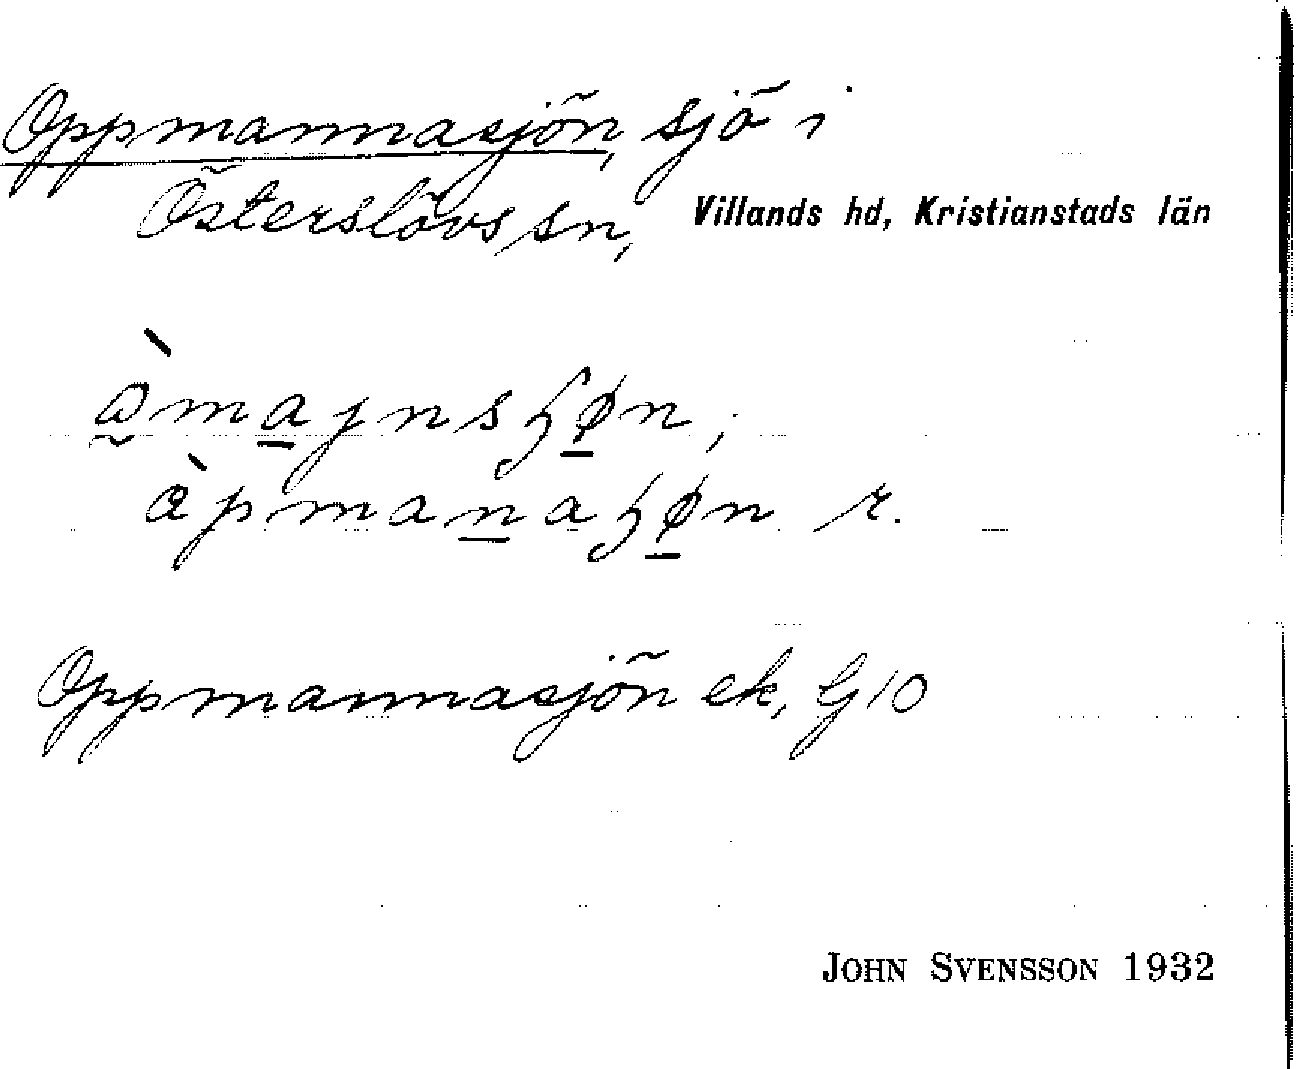 Oppmannasjön, sjö i
Österslövs sn, Villands hd, Kristianstads län
r.
Oppmannasjön ek, G10
JOHN SVENSSON 1932